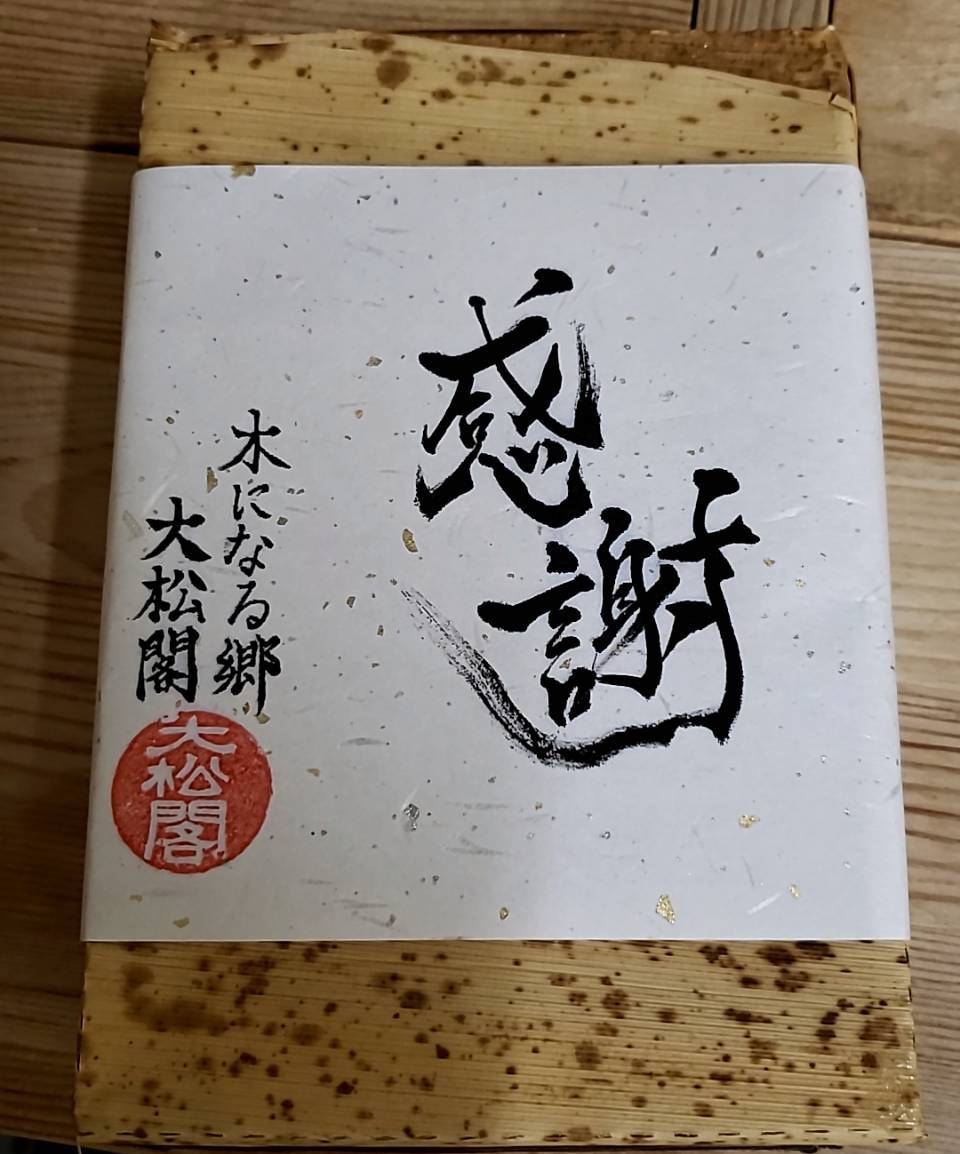 感謝
木になる郷
大松閣
大松閣